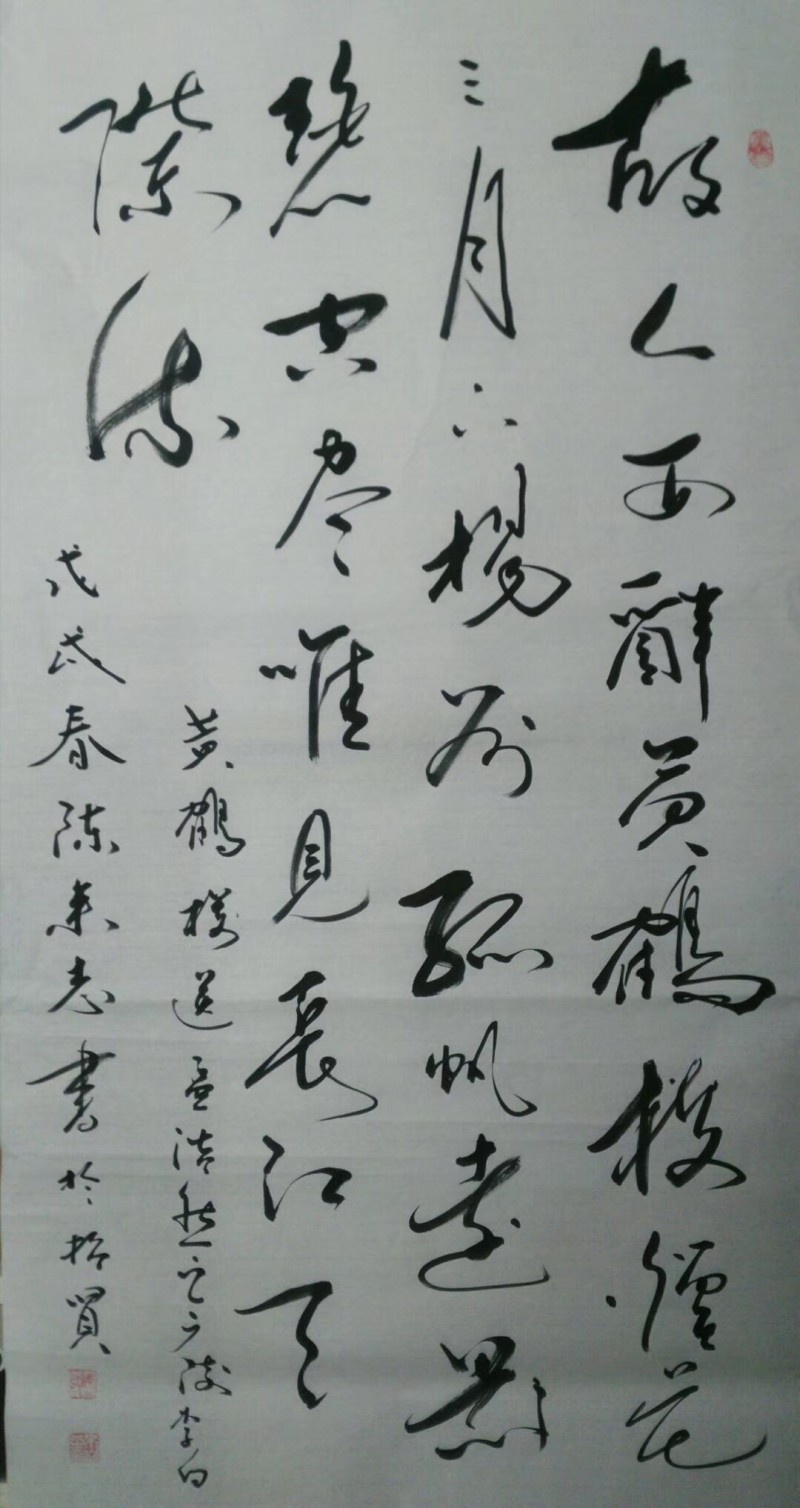 故人西辭黄鶴楼煙花
三月下楊州孤帆遠影
碧空尽唯見長江天
際流
黄鶴楼送孟浩然之广陵李白
戊戌春陈志書於招賢